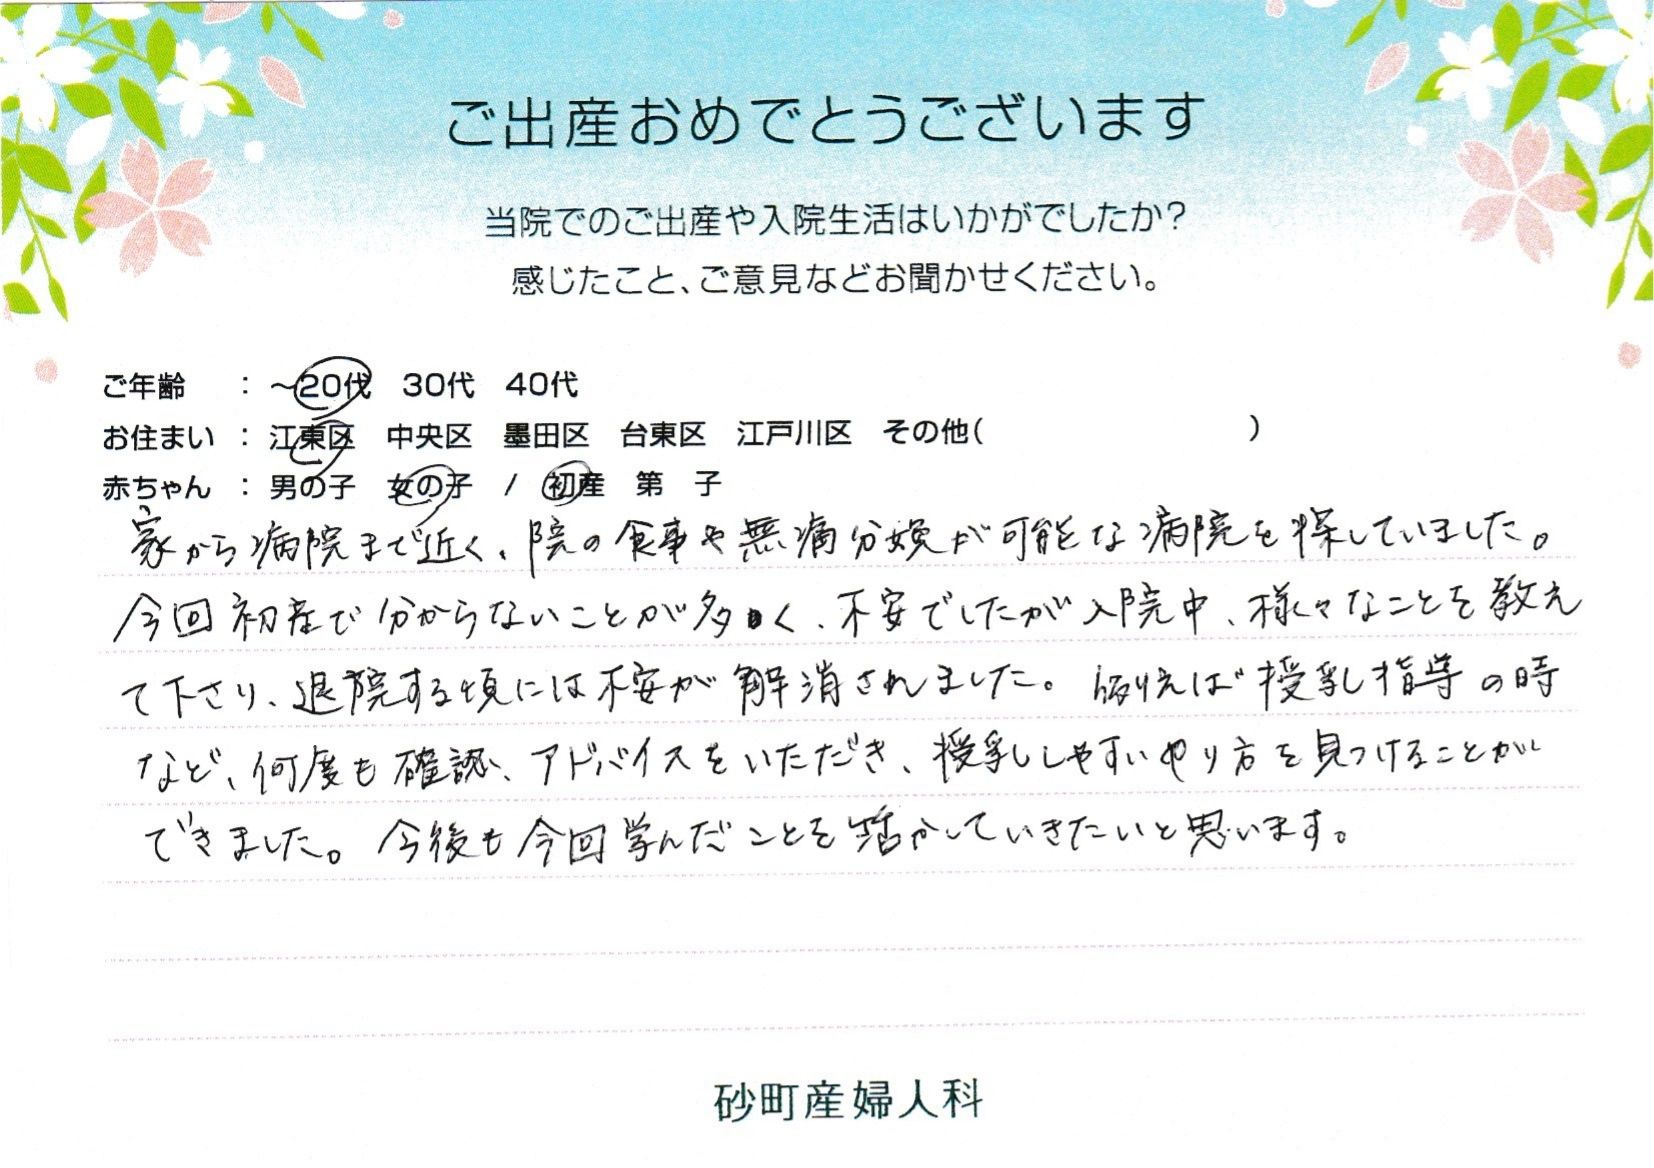 ご出産おめでとうございます
当院でのご出産や入院生活はいかがでしたか？
感じたこと、ご意見などお聞かせください。
ご年齢 ： ～20代 30代 40代
お住まい ： 江東区 中央区 墨田区 台東区 江戸川区 その他( )
赤ちゃん ： 男の子 女の子 / 初産 第 子
家から病院まで近く、院の食事や無痛分娩が可能な病院を探していました。
今回初産で分からないことが多く、不安でしたが入院中、様々なことを教え
て下さり、退院する頃には不安が解消されました。例えば授乳指導の時
など、何度も確認、アドバイスをいただき、授乳しやすいやり方を見つけることが
できました。今後も今回学んだことを活かしていきたいと思います。
砂町産婦人科